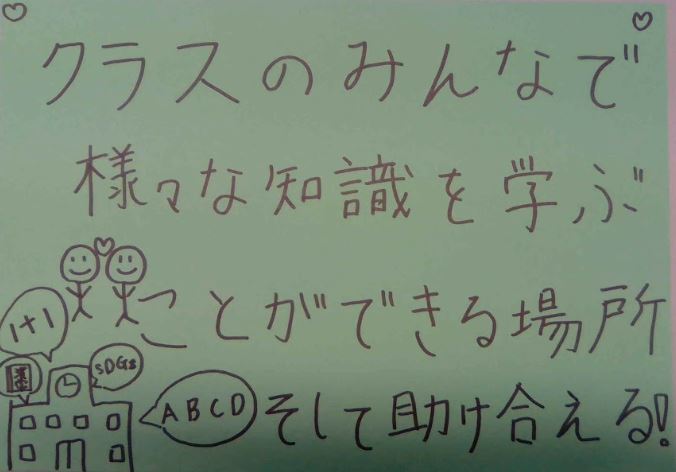 クラスのみんなで
様々な知識を学ぶ
ことができる場所
1+1
SDGs
ABCD
そして助け合える!